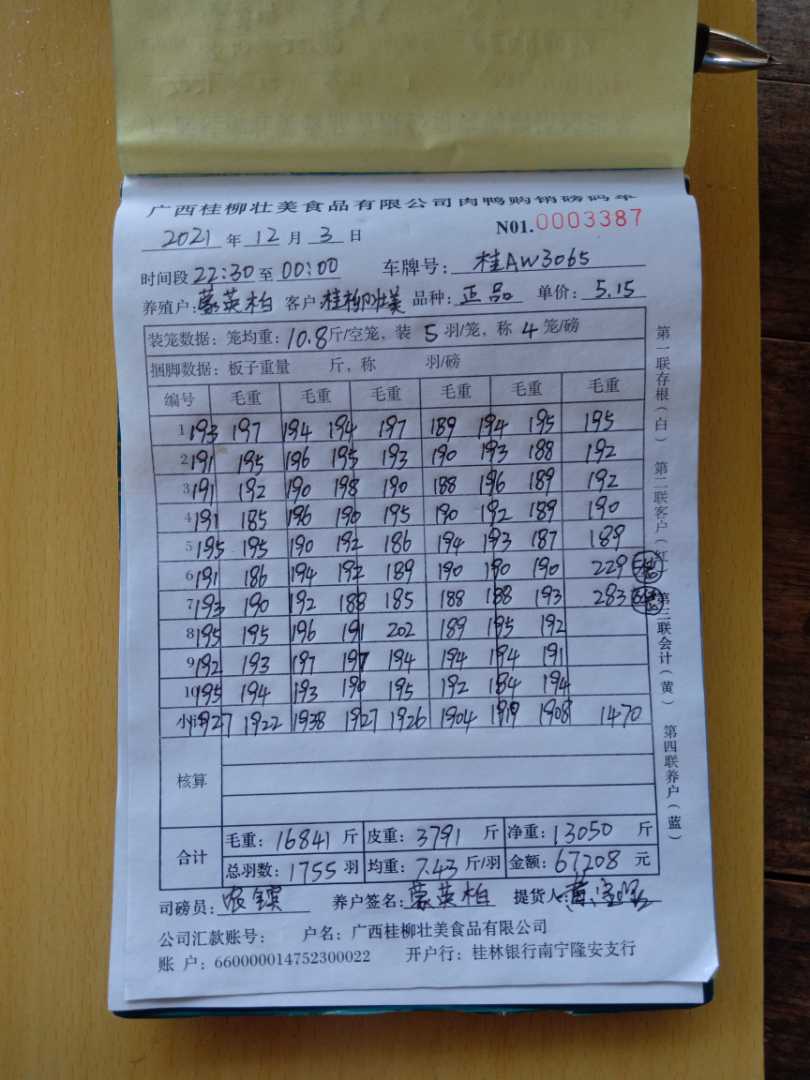 广西桂柳壮美食品有限公司肉鸭购销磅码单
N01.0003387
2021 年 12 月 3 日
时间段 22:30 至 00:00 车牌号: 桂AW3065
养殖户: 蒙英柏 客户 桂柳壮美 品种: 正品 单价: 5.15
装笼数据: 笼均重: 10.8 斤/空笼, 装 5 羽/笼, 称 4 笼/磅
捆脚数据: 板子重量 斤, 称 羽/磅
编号 毛重 毛重 毛重 毛重 毛重 毛重
1 193 197 194 194 197 189 194 195 195
2 191 195 196 195 193 190 193 188 192
3 191 192 190 198 190 188 196 189 192
4 191 185 196 196 195 190 192 189 190
5 195 195 190 192 186 194 193 187 189
6 191 186 194 192 189 190 190 190 229
7 193 190 192 188 185 188 188 193 283
8 195 195 196 191 202 189 195 192
9 192 193 197 197 194 194 194 191
10 195 194 193 190 195 192 184 194
小计 1927 1922 1938 1927 1926 1904 1919 1908 1470
核算
合计 毛重: 16841 斤 皮重: 3791 斤 净重: 13050 斤
总羽数: 1755 羽 均重: 7.43 斤/羽 金额: 67208 元
司磅员: 养户签名: 蒙英柏 提货人: 黄
公司汇款账号: 户名: 广西桂柳壮美食品有限公司
账 户: 660000014752300022 开户行: 桂林银行南宁隆安支行
第一联存根(白) 第二联客户(红) 第三联会计(黄) 第四联养户(蓝)